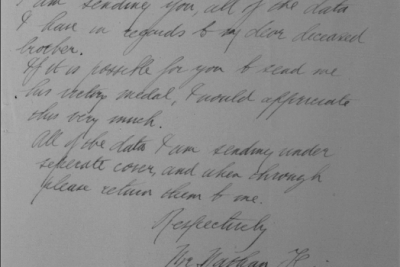 I am sending you, all of the data
I have in regards to my dear deceased
brother.
If it is possible for you to send me
his victory medal, I would appreciate
this very much.
All of the data I am sending under
seperate cover, and when through
please return them to me.
Respectively
Nathan H